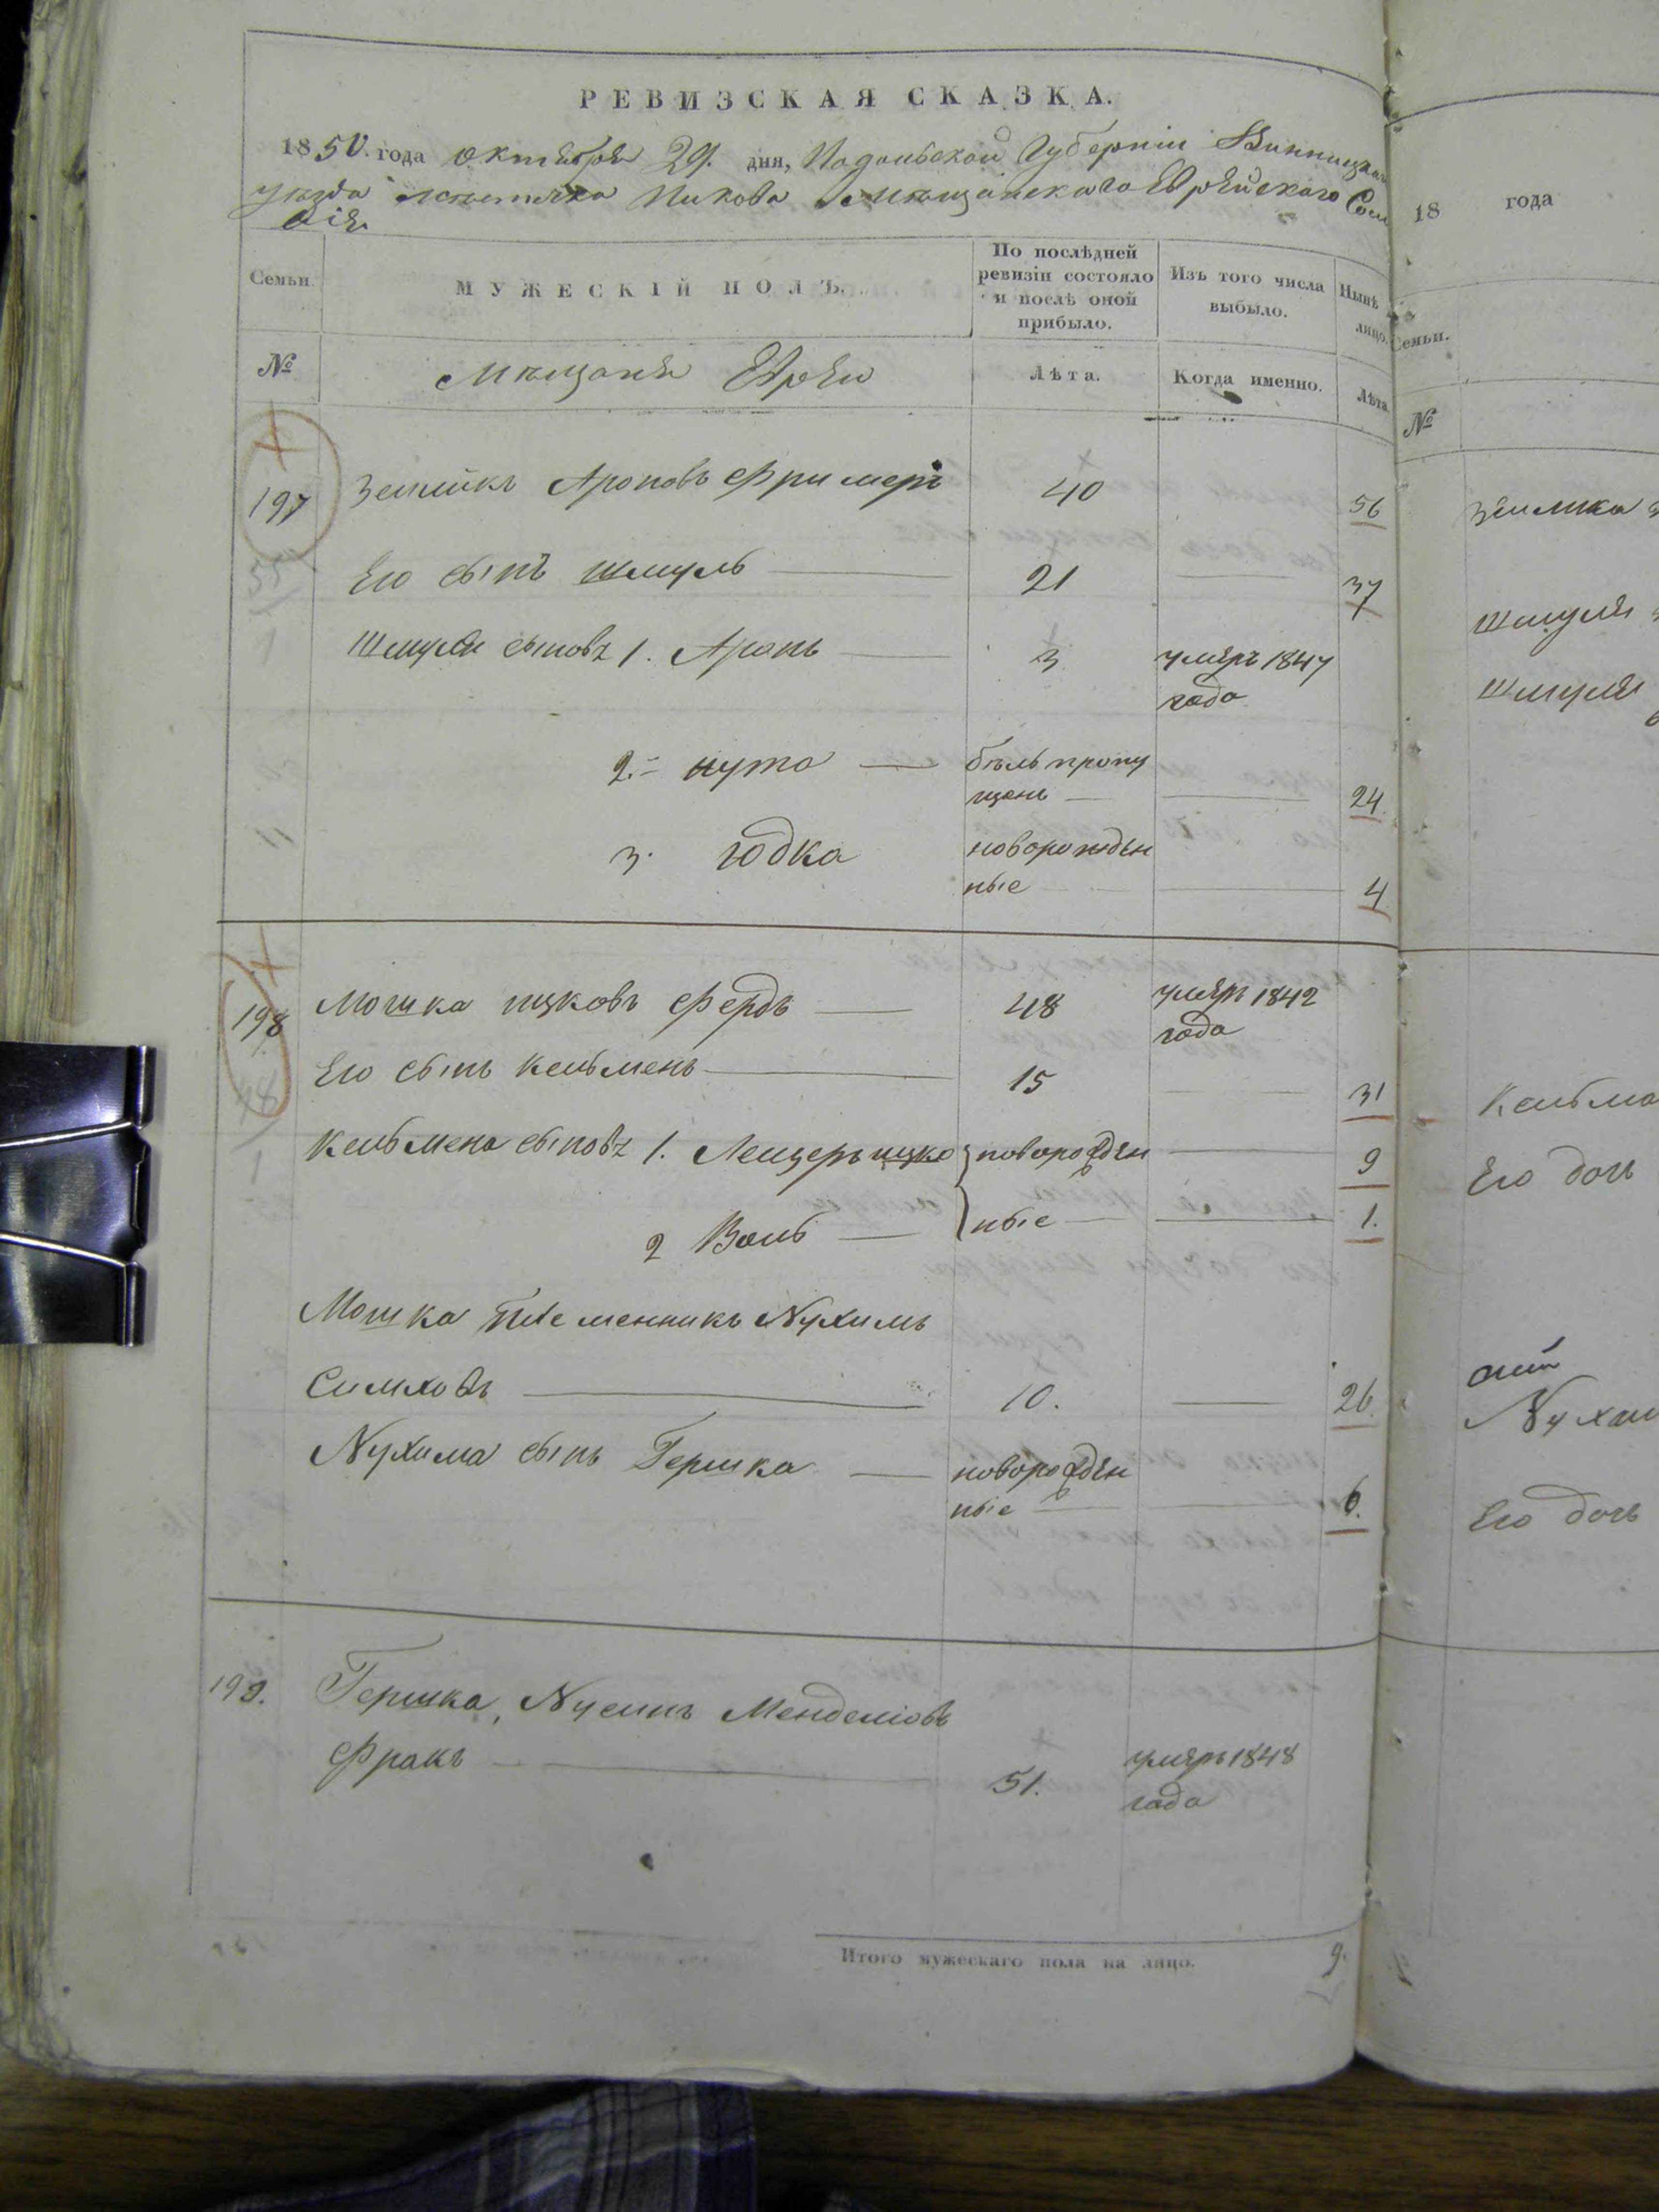 РЕВИЗСКАЯ СКАЗКА.
1850. года октября 29. дня, Подольской Губернiи Винницкаго
уѣзда мѣстечка Пикова Мѣщанскаго Еврейскаго Сосло
вiя
Семьи.
МУЖЕСКIЙ ПОЛЪ.
По послѣдней
ревизiи состояло
и послѣ оной
прибыло.
Изъ того числа
выбыло.
Нынѣ
лицо.
№
Мѣщане Евреи
Лѣта.
Когда именно.
Лѣта.
197 Арон​овъ Фримеръ 40 56
Его сынъ Шмуль 21 37
Шмуля сыновъ 1. Аронъ 3 умеръ 1847
года
2. Нута былъ пропу
щенъ 24.
3. Юдка новорожден
ные 4
198 Мошка Ицковъ Фердъ 48 умеръ 1842
года
Его сынъ Кельменъ 15 31
Кельмена сыновъ 1. Лейзеръ Ицко новорожден 9
2 Воль ные 1.
Мошка племенникъ Нухимъ
Симховъ 10. 26.
Нухима сынъ Гершка новорожден
ные 6.
199. Гершка, Нусинъ Менделiовъ
Фракъ 51. умеръ 1848
года
Итого мужескаго пола на лицо. 9.
18 года
Семьи.
№
Шмуля
Шмуля
Кельма
Его дочь
Нухим
Его дочь